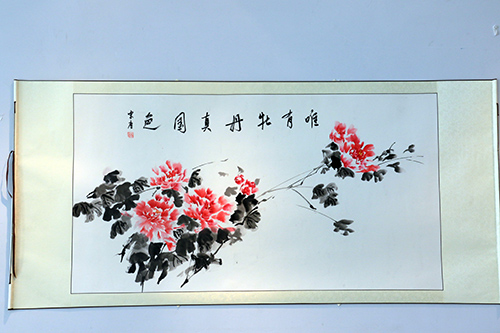 唯有牡丹真国色